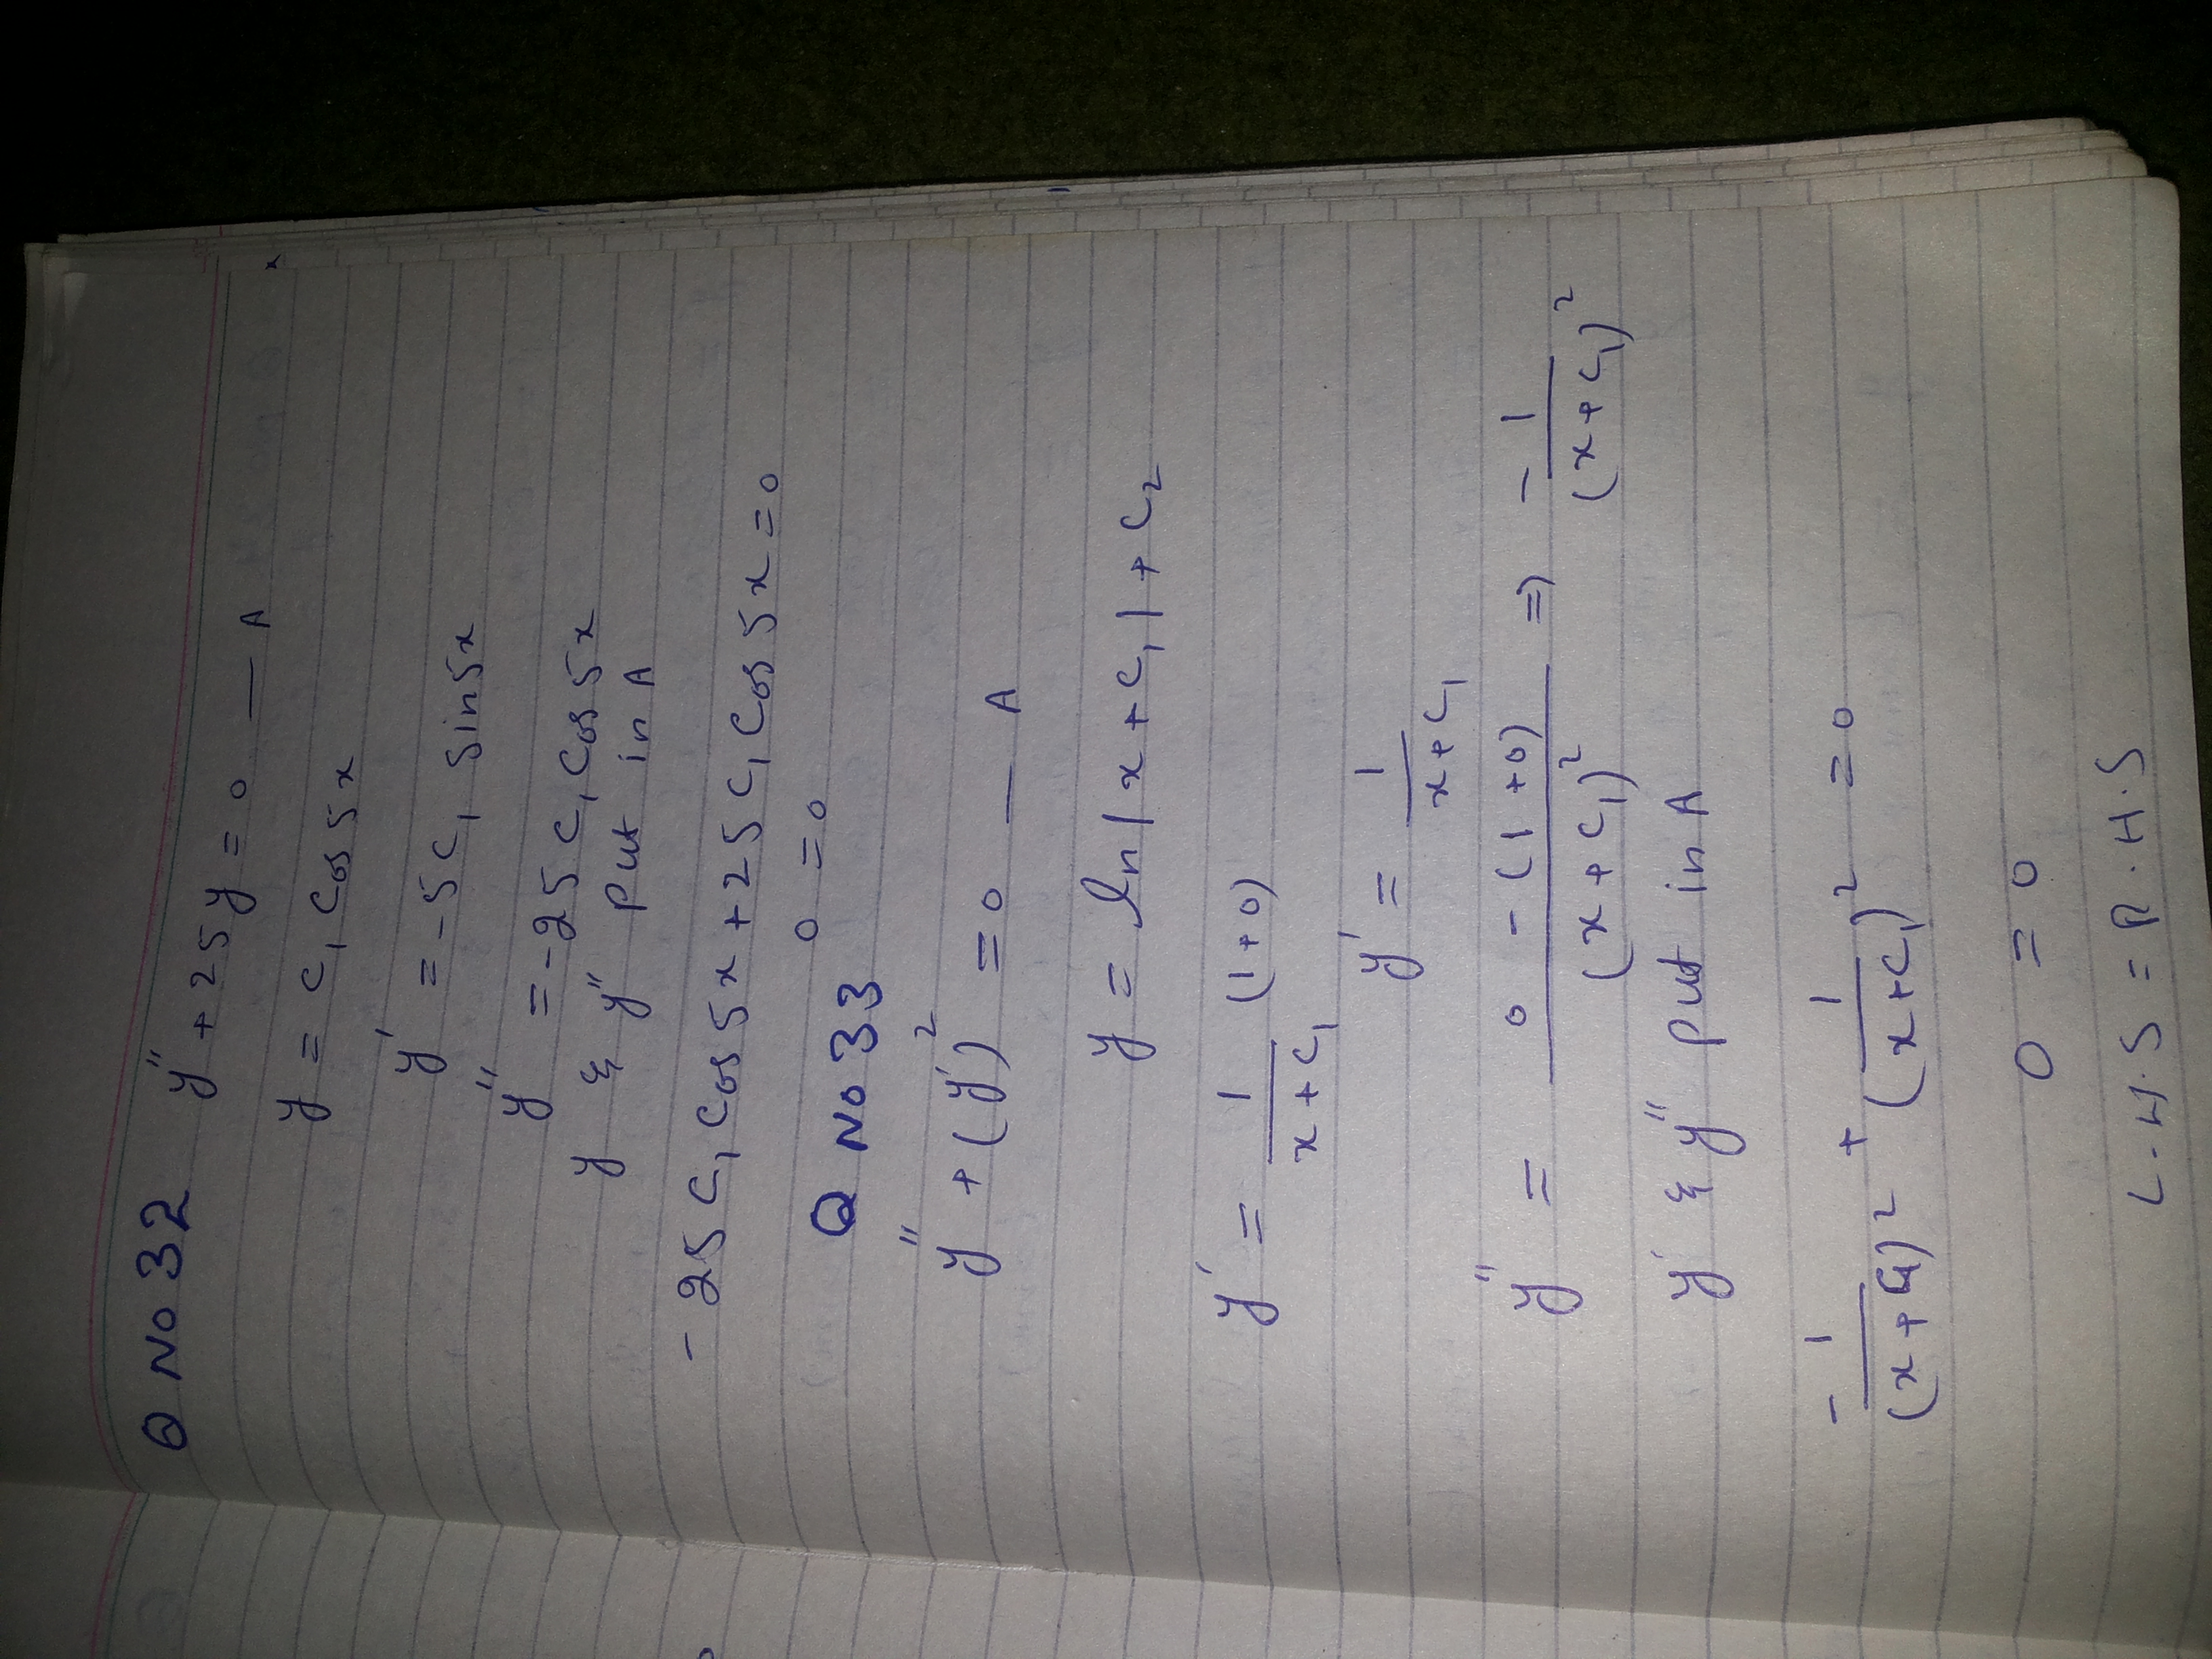 Q No 32 y'' + 25y = 0 — A
y = c₁ cos 5x
y' = -5c₁ sin5x
y'' = -25c₁ cos 5x
y & y'' put in A
-25c₁ cos 5x + 25c₁ cos 5x = 0
0 = 0
Q No 33
y'' + (y')² = 0 — A
y = ln|x + c₁| + c₂
y' = 1/(x + c₁) (1+0)
y' = 1/(x+c₁)
y'' = (0 - (1+0))/(x + c₁)² => -1/(x+c₁)²
y' & y'' put in A
-1/(x+c₁)² + 1/(x+c₁)² = 0
0 = 0
L.H.S = R.H.S